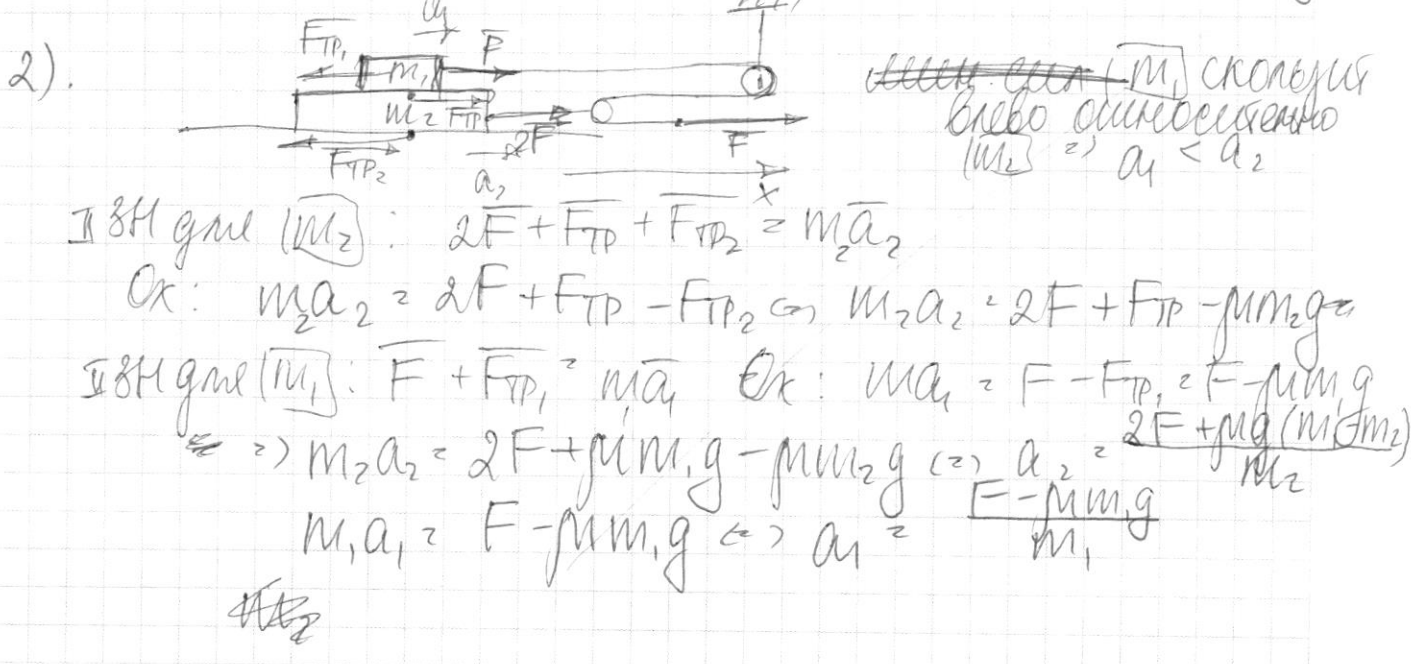 2).
F̅тр₁ a₁ F̅
m₁
m₂ F̅тр 2F̅ F̅
F̅тр₂ a₂ x
(m₁) скользит
влево относительно
(m₂) => a₁ < a₂
II ЗН для (m₂): 2F̅ + F̅тр + F̅тр₂ = m₂a̅₂
Ox: m₂a₂ = 2F + Fтр - Fтр₂ <=> m₂a₂ = 2F + Fтр - μm₂g
II ЗН для (m₁): F̅ + F̅тр₁ = m₁a̅₁ Ox: ma₁ = F - Fтр₁ = F - μm₁g
=> m₂a₂ = 2F + μm₁g - μm₂g <=> a₂ = (2F + μg(m₁ - m₂))/m₂
m₁a₁ = F - μm₁g <=> a₁ = (F - μm₁g)/m₁